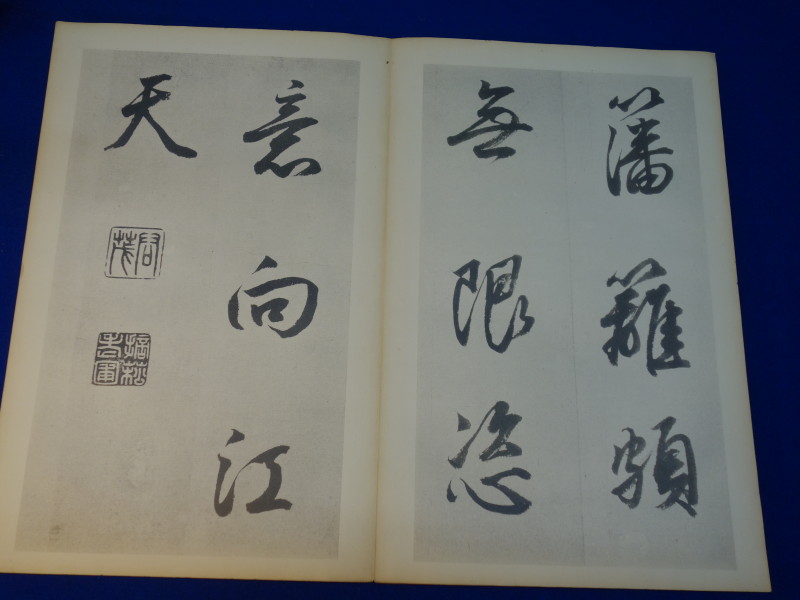 藩籬頗
無限恣
意向江
天